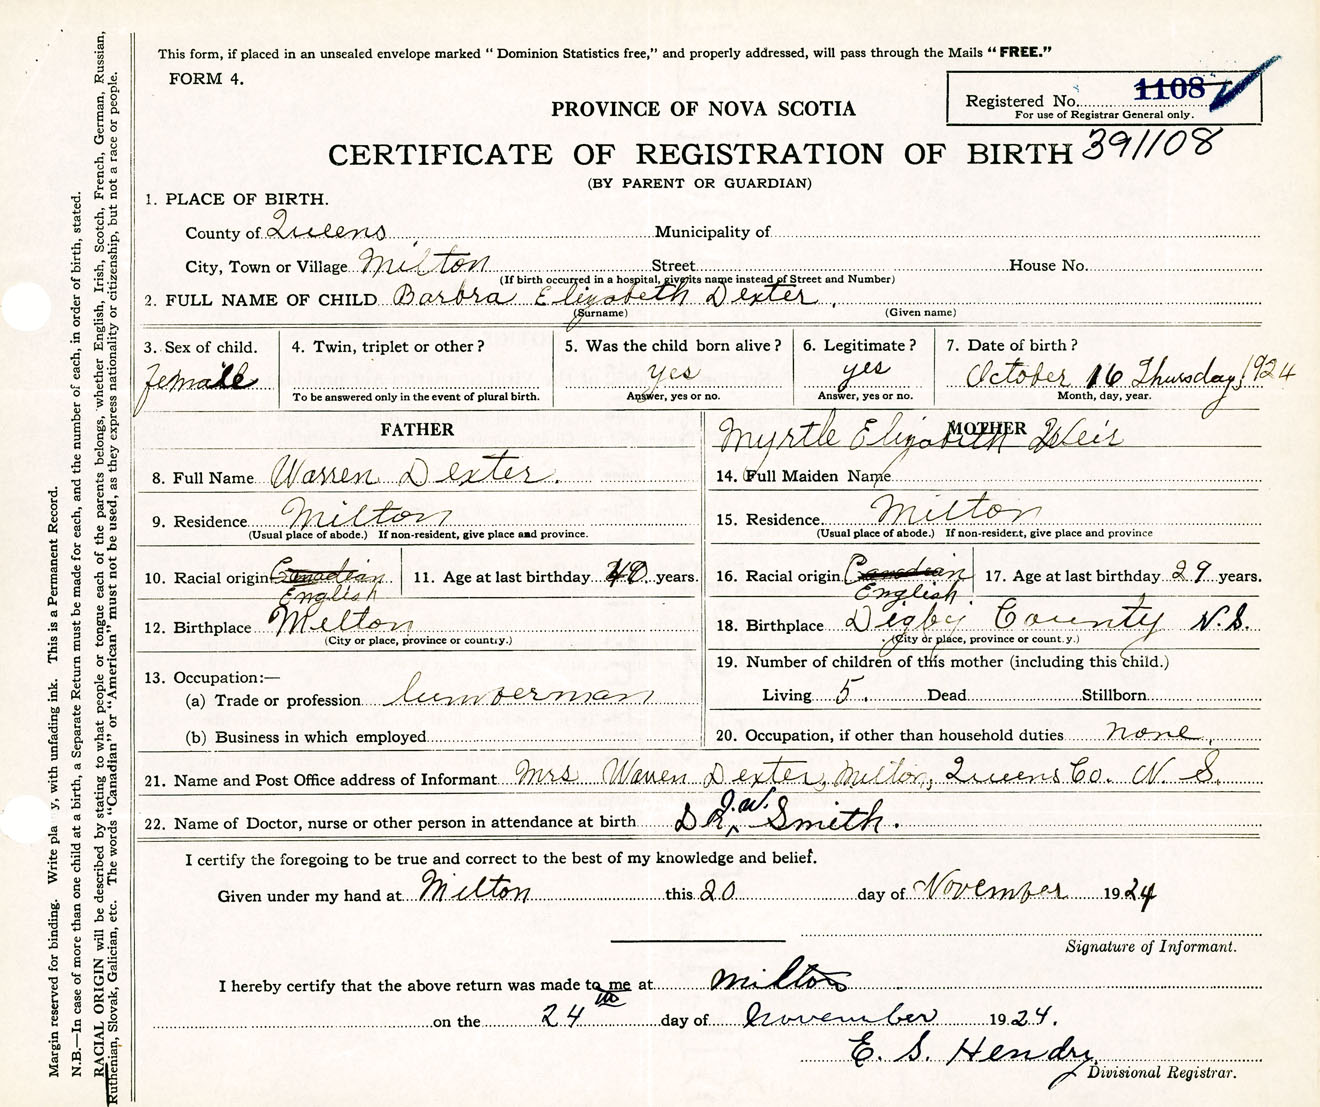 This form, if placed in an unsealed envelope marked “ Dominion Statistics free,” and properly addressed, will pass through the Mails “FREE.”
FORM 4.
Registered No. 1108
For use of Registrar General only.
PROVINCE OF NOVA SCOTIA
CERTIFICATE OF REGISTRATION OF BIRTH 391108
(BY PARENT OR GUARDIAN)
1. PLACE OF BIRTH.
County of Queens Municipality of
City, Town or Village Milton Street House No.
(If birth occurred in a hospital, give its name instead of Street and Number)
2. FULL NAME OF CHILD Barbra Elizabeth Dexter.
(Surname) (Given name)
3. Sex of child. 4. Twin, triplet or other? 5. Was the child born alive? 6. Legitimate? 7. Date of birth?
female yes yes October 16 Thursday, 1924
To be answered only in the event of plural birth. Answer, yes or no. Answer, yes or no. Month, day, year.
FATHER
8. Full Name Warren Dexter.
9. Residence Milton
(Usual place of abode.) If non-resident, give place and province.
10. Racial origin Canadian English 11. Age at last birthday 40 years.
12. Birthplace Milton
(City or place, province or country.)
13. Occupation:—
(a) Trade or profession lumberman
(b) Business in which employed
MOTHER
Myrtle Elizabeth Weir
14. Full Maiden Name
15. Residence Milton
(Usual place of abode.) If non-resident, give place and province
16. Racial origin Canadian English 17. Age at last birthday 29 years.
18. Birthplace Digby County N.S.
(City or place, province or country.)
19. Number of children of this mother (including this child.)
Living 5. Dead Stillborn
20. Occupation, if other than household duties none.
21. Name and Post Office address of Informant Mrs Warren Dexter, Milton, Queens Co. N. S.
22. Name of Doctor, nurse or other person in attendance at birth DR. J.W. Smith.
I certify the foregoing to be true and correct to the best of my knowledge and belief.
Given under my hand at Milton this 20 day of November 1924
Signature of Informant.
I hereby certify that the above return was made to me at Milton
on the 24th day of November 1924.
E. S. Hendry
Divisional Registrar.
Margin reserved for binding. Write pla y, with unfading ink. This is a Permanent Record.
N.B.—In case of more than one child at a birth, a Separate Return must be made for each, and the number of each, in order of birth, stated.
RACIAL ORIGIN will be described by stating to what people or tongue each of the parents belongs, whether English, Irish, Scotch, French, German, Russian,
Ruthenian, Slovak, Galician, etc. The words “Canadian” or “American” must not be used, as they express nationality or citizenship, but not a race or people.